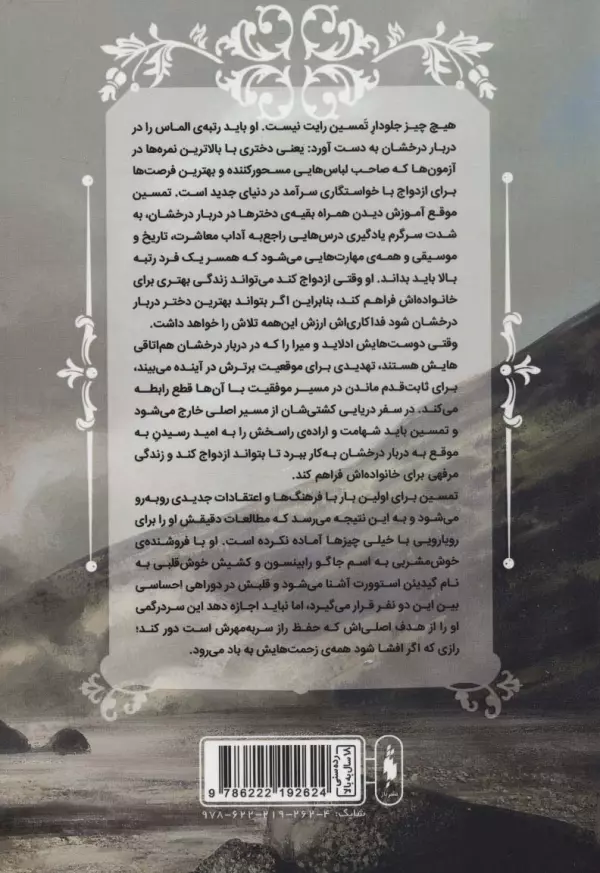 هیچ چیز جلودارِ تَمسین رایت نیست. او باید رتبه‌ی الماس را در
دربار درخشان به دست آورد: یعنی دختری با بالاترین نمره‌ها در
آزمون‌ها که صاحب لباس‌هایی مسحورکننده و بهترین فرصت‌ها
برای ازدواج با خواستگاری سرآمد در دنیای جدید است. تمسین
موقع آموزش دیدن همراه بقیه‌ی دخترها در دربار درخشان، به
شدت سرگرم یادگیری درس‌هایی راجع‌به آداب معاشرت، تاریخ و
موسیقی و همه‌ی مهارت‌هایی می‌شود که همسر یک فرد رتبه
بالا باید بداند. او وقتی ازدواج کند می‌تواند زندگی بهتری برای
خانواده‌اش فراهم کند، بنابراین اگر بتواند بهترین دختر دربار
درخشان شود فداکاری‌اش ارزش این‌همه تلاش را خواهد داشت.
وقتی دوست‌هایش ادلاید و میرا را که در دربار درخشان هم‌اتاقی
هایش هستند، تهدیدی برای موقعیت برترش در آینده می‌بیند،
برای ثابت‌قدم ماندن در مسیر موفقیت با آن‌ها قطع رابطه
می‌کند. در سفر دریایی کشتی‌شان از مسیر اصلی خارج می‌شود
و تمسین باید شهامت و اراده‌ی راسخش را به امید رسیدن به
موقع به دربار درخشان به‌کار ببرد تا بتواند ازدواج کند و زندگی
مرفهی برای خانواده‌اش فراهم کند.
تمسین برای اولین بار با فرهنگ‌ها و اعتقادات جدیدی روبه‌رو
می‌شود و به این نتیجه می‌رسد که مطالعات دقیقش او را برای
رویارویی با خیلی چیزها آماده نکرده است. او با فروشنده‌ی
خوش‌مشربی به اسم جاگو رابینسون و کشیش خوش‌قلبی به
نام گیدیئن استوورت آشنا می‌شود و قلبش در دوراهی احساسی
بین این دو نفر قرار می‌گیرد، اما نباید اجازه دهد این سردرگمی
او را از هدف اصلی‌اش که حفظ راز سربه‌مهرش است دور کند؛
رازی که اگر افشا شود همه‌ی زحمت‌هایش به باد می‌رود.
رده‌سنی
۱۸ سال به بالا
نشر باژ
9 786222 192624
شابک: ۴-۲۶۲-۲۱۹-۶۲۲-۹۷۸